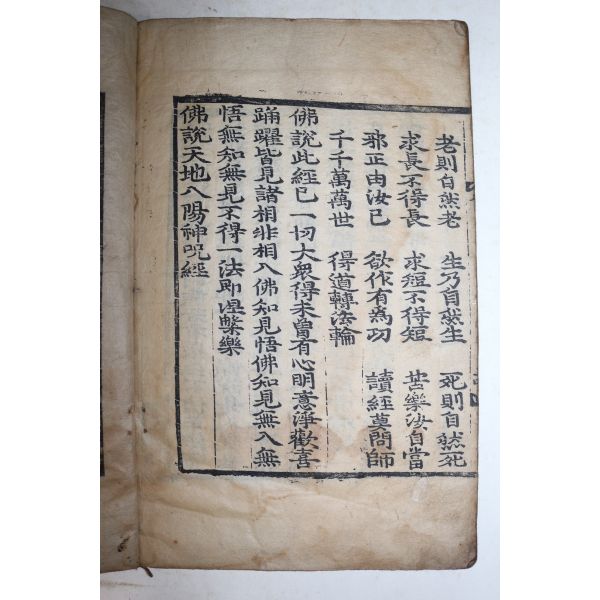 老則自然老 生乃自然生 死則自然死
求長不得長 求短不得短 苦樂汝自當
邪正由汝已 欲作有為功 讀經莫問師
千千萬萬世 得道轉法輪
佛說此經已一切大衆得未曾有心明意淨歡喜
踊躍皆見諸相非相入佛知見悟佛知見無入無
悟無知無見不得一法即涅槃樂
佛說天地八陽神呪經